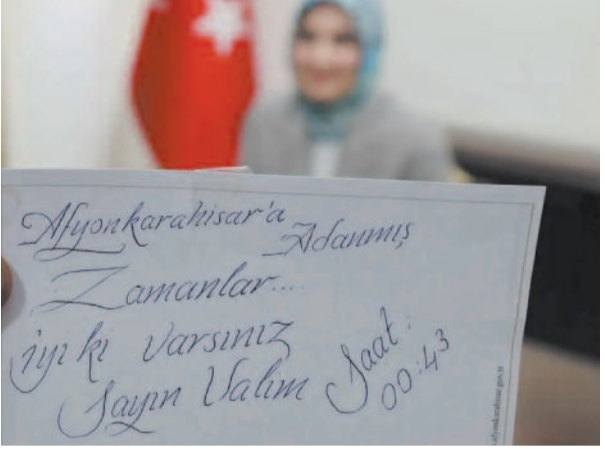 Afyonkarahisar'a Adanmış
Zamanlar....
iyi ki varsınız
Sayın Valim
Saat:
00:43
afyonkarahisar.gov.tr